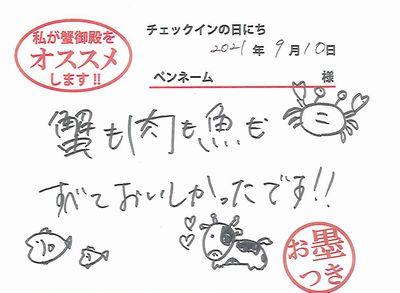 私が蟹御殿を
オススメ
します!!
チェックインの日にち
2021年 9月 10日
ペンネーム 様
蟹も肉も魚も
すべておいしかったです!!
お墨
つき